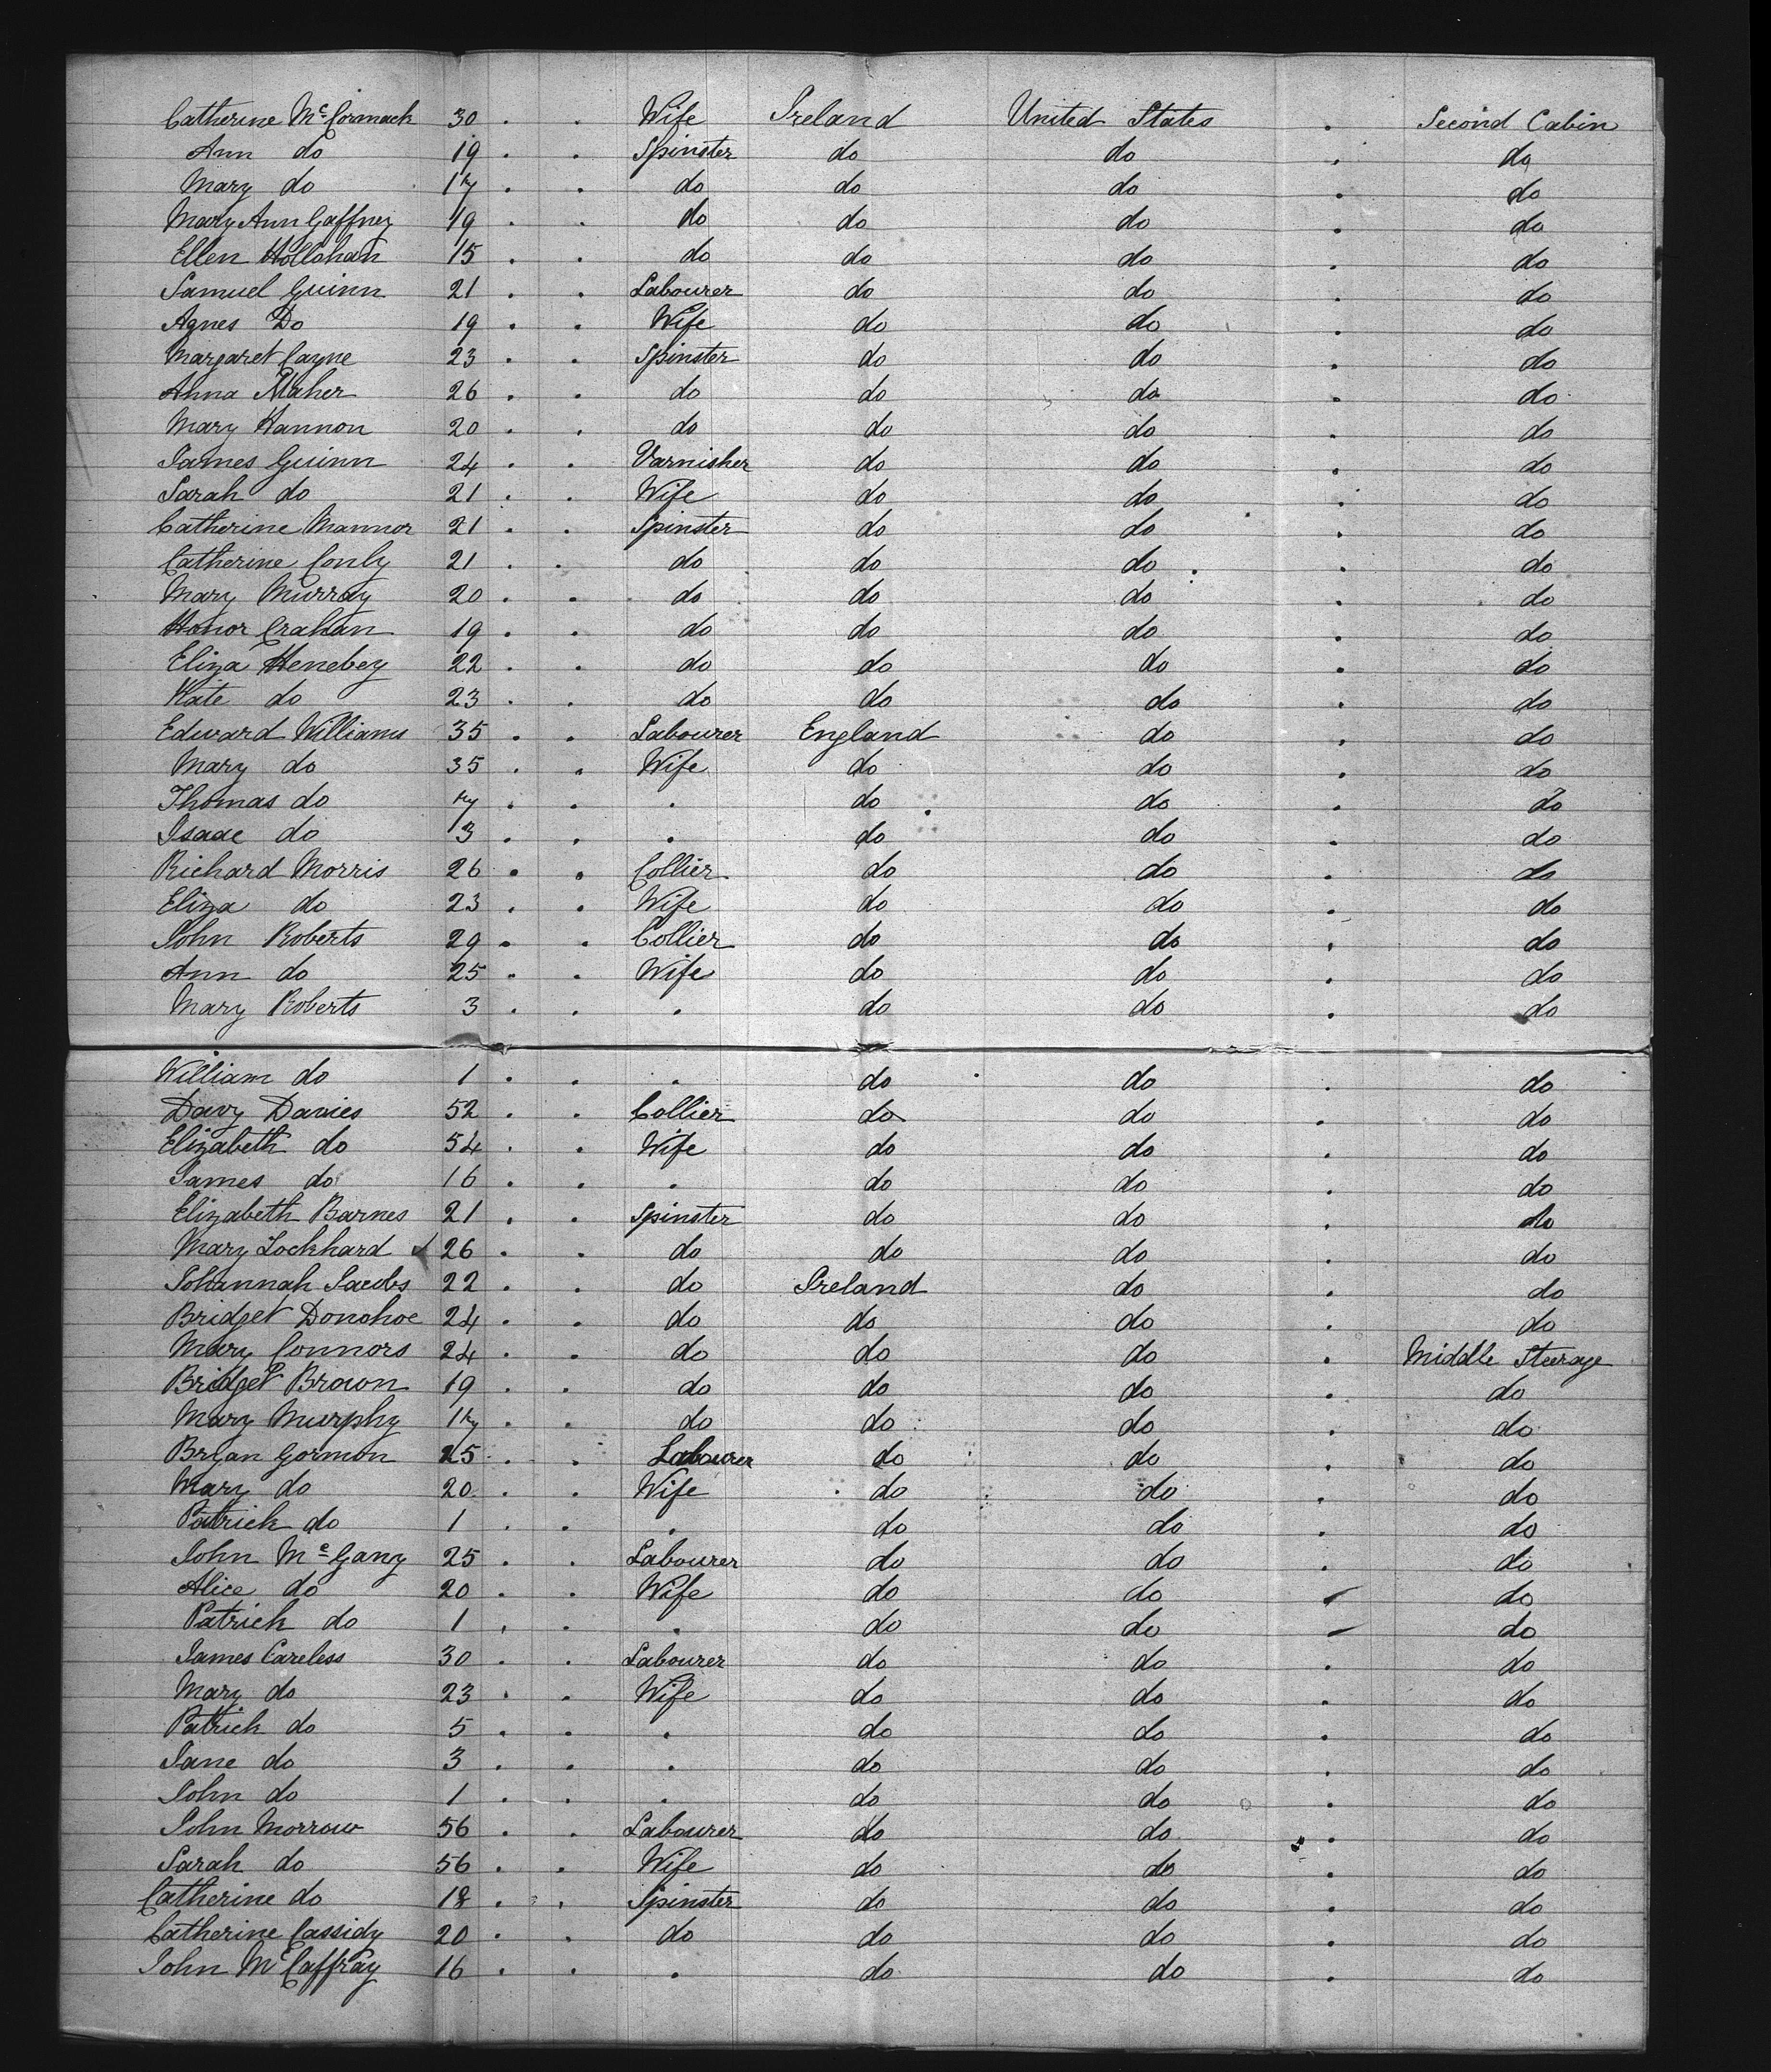 Catherine McCormack 30 . . Wife Ireland United States . Second Cabin
Ann do 19 . . Spinster do do . do
Mary do 17 . . do do do . do
Mary Ann Gaffney 19 . . do do do . do
Ellen Hollohan 15 . . do do do . do
Samuel Guinn 21 . . Labourer do do . do
Agnes Do 19 . . Wife do do . do
Margaret Cayne 23 . . Spinster do do . do
Anna Maher 26 . . do do do . do
Mary Hannon 20 . . do do do . do
James Guinn 24 . . Varnisher do do . do
Sarah do 21 . . Wife do do . do
Catherine Mannor 21 . . Spinster do do . do
Catherine Conly 21 . . do do do . do
Mary Murray 20 . . do do do . do
Honor Crahan 19 . . do do do . do
Eliza Henebey 22 . . do do do . do
Kate do 23 . . do do do . do
Edward Williams 35 . . Labourer England do . do
Mary do 35 . . Wife do do . do
Thomas do 7 . . . do do . do
Isaac do 3 . . . do do . do
Richard Morris 26 . . Collier do do . do
Eliza do 23 . . Wife do do . do
John Roberts 29 . . Collier do do . do
Ann do 25 . . Wife do do . do
Mary Roberts 3 . . . do do . do
William do 1 . . . do do . do
Davy Davies 52 . . Collier do do . do
Elizabeth do 54 . . Wife do do . do
James do 16 . . . do do . do
Elizabeth Barnes 21 . . Spinster do do . do
Mary Lockhard 26 . . do do do . do
Johannah Jacobs 22 . . do Ireland do . do
Bridget Donohoe 24 . . do do do . do
Mary Connors 24 . . do do do . Middle Steerage
Bridget Brown 19 . . do do do . do
Mary Murphy 17 . . do do do . do
Bryan Gormon 25 . . Labourer do do . do
Mary do 20 . . Wife do do . do
Patrick do 1 . . . do do . do
John McGany 25 . . Labourer do do . do
Alice do 20 . . Wife do do . do
Patrick do 1 . . . do do . do
James Careless 30 . . Labourer do do . do
Mary do 23 . . Wife do do . do
Patrick do 5 . . . do do . do
Jane do 3 . . . do do . do
John do 1 . . . do do . do
John Morrow 56 . . Labourer do do . do
Sarah do 56 . . Wife do do . do
Catherine do 18 . . Spinster do do . do
Catherine Cassidy 20 . . do do do . do
John McCaffray 16 . . . do do . do